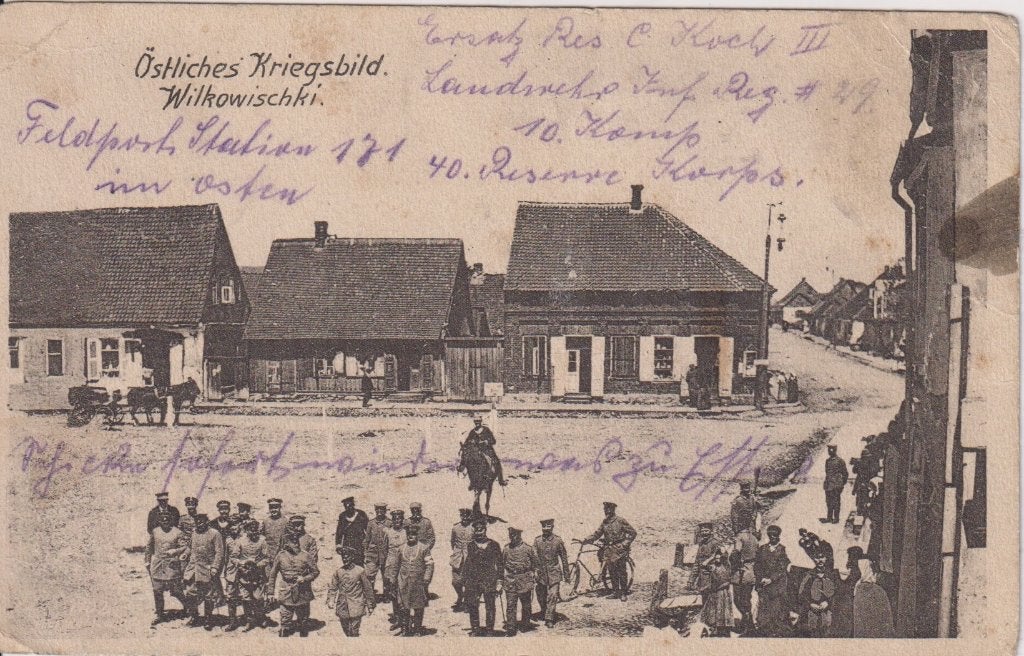 Östliches Kriegsbild.
Wilkowischki.
Ersatz Res C. Koch III
Landwehr Inf. Reg. # 49.
10. Komp
40. Reserve Korps.
Feldpost Station 171
im Osten
Schicke sofort wieder was zu